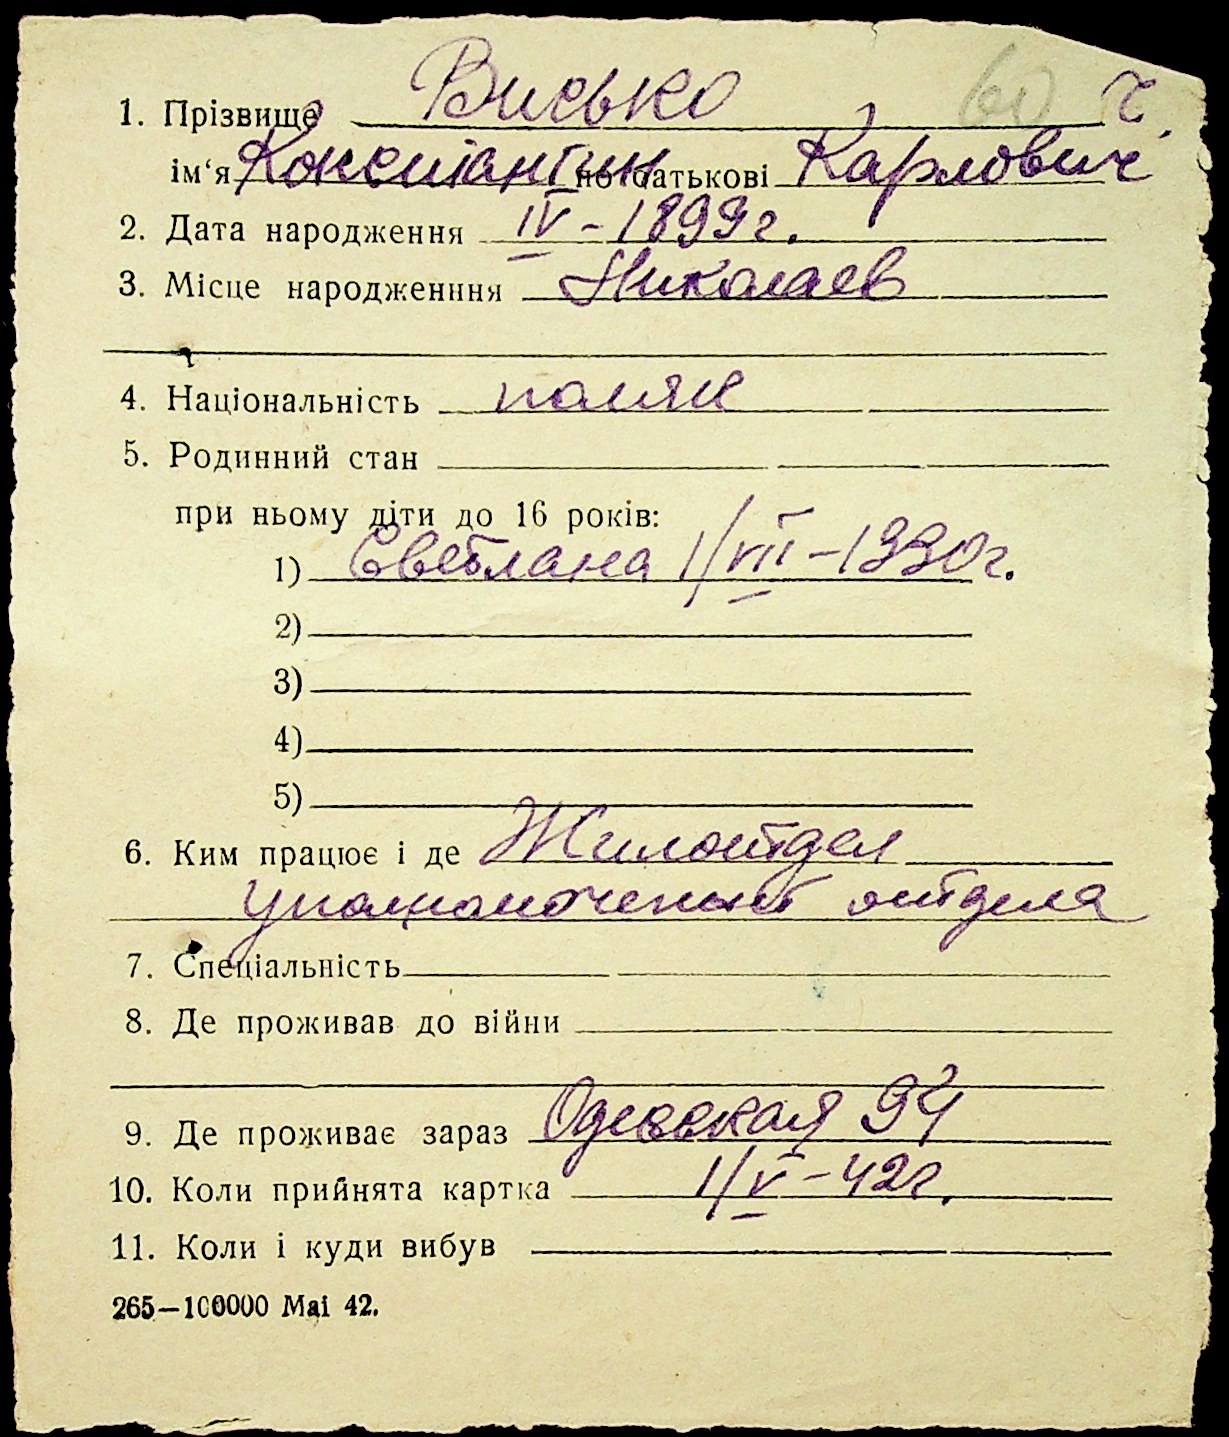 60 ч.
1. Прізвище Висько
ім'я Константин по батькові Карлович
2. Дата народження IV - 1899 г.
3. Місце народженння Николаев
4. Національність поляк
5. Родинний стан
при ньому діти до 16 років:
1) Светлана 1/VII - 1930 г.
2)
3)
4)
5)
6. Ким працює і де Жилотдел
уполномоченный отдела
7. Спеціальність
8. Де проживав до війни
9. Де проживає зараз Одесская 94
10. Коли прийнята картка 1/V - 42 г.
11. Коли і куди вибув
265—100000 Mai 42.